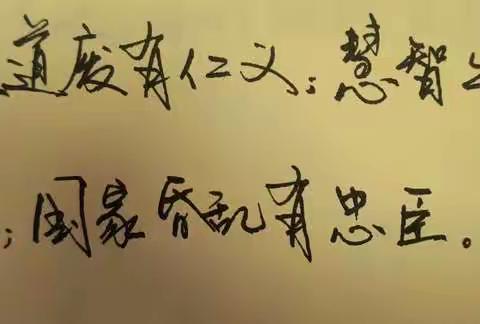 道废有仁义；慧智
；国家昏乱有忠臣。